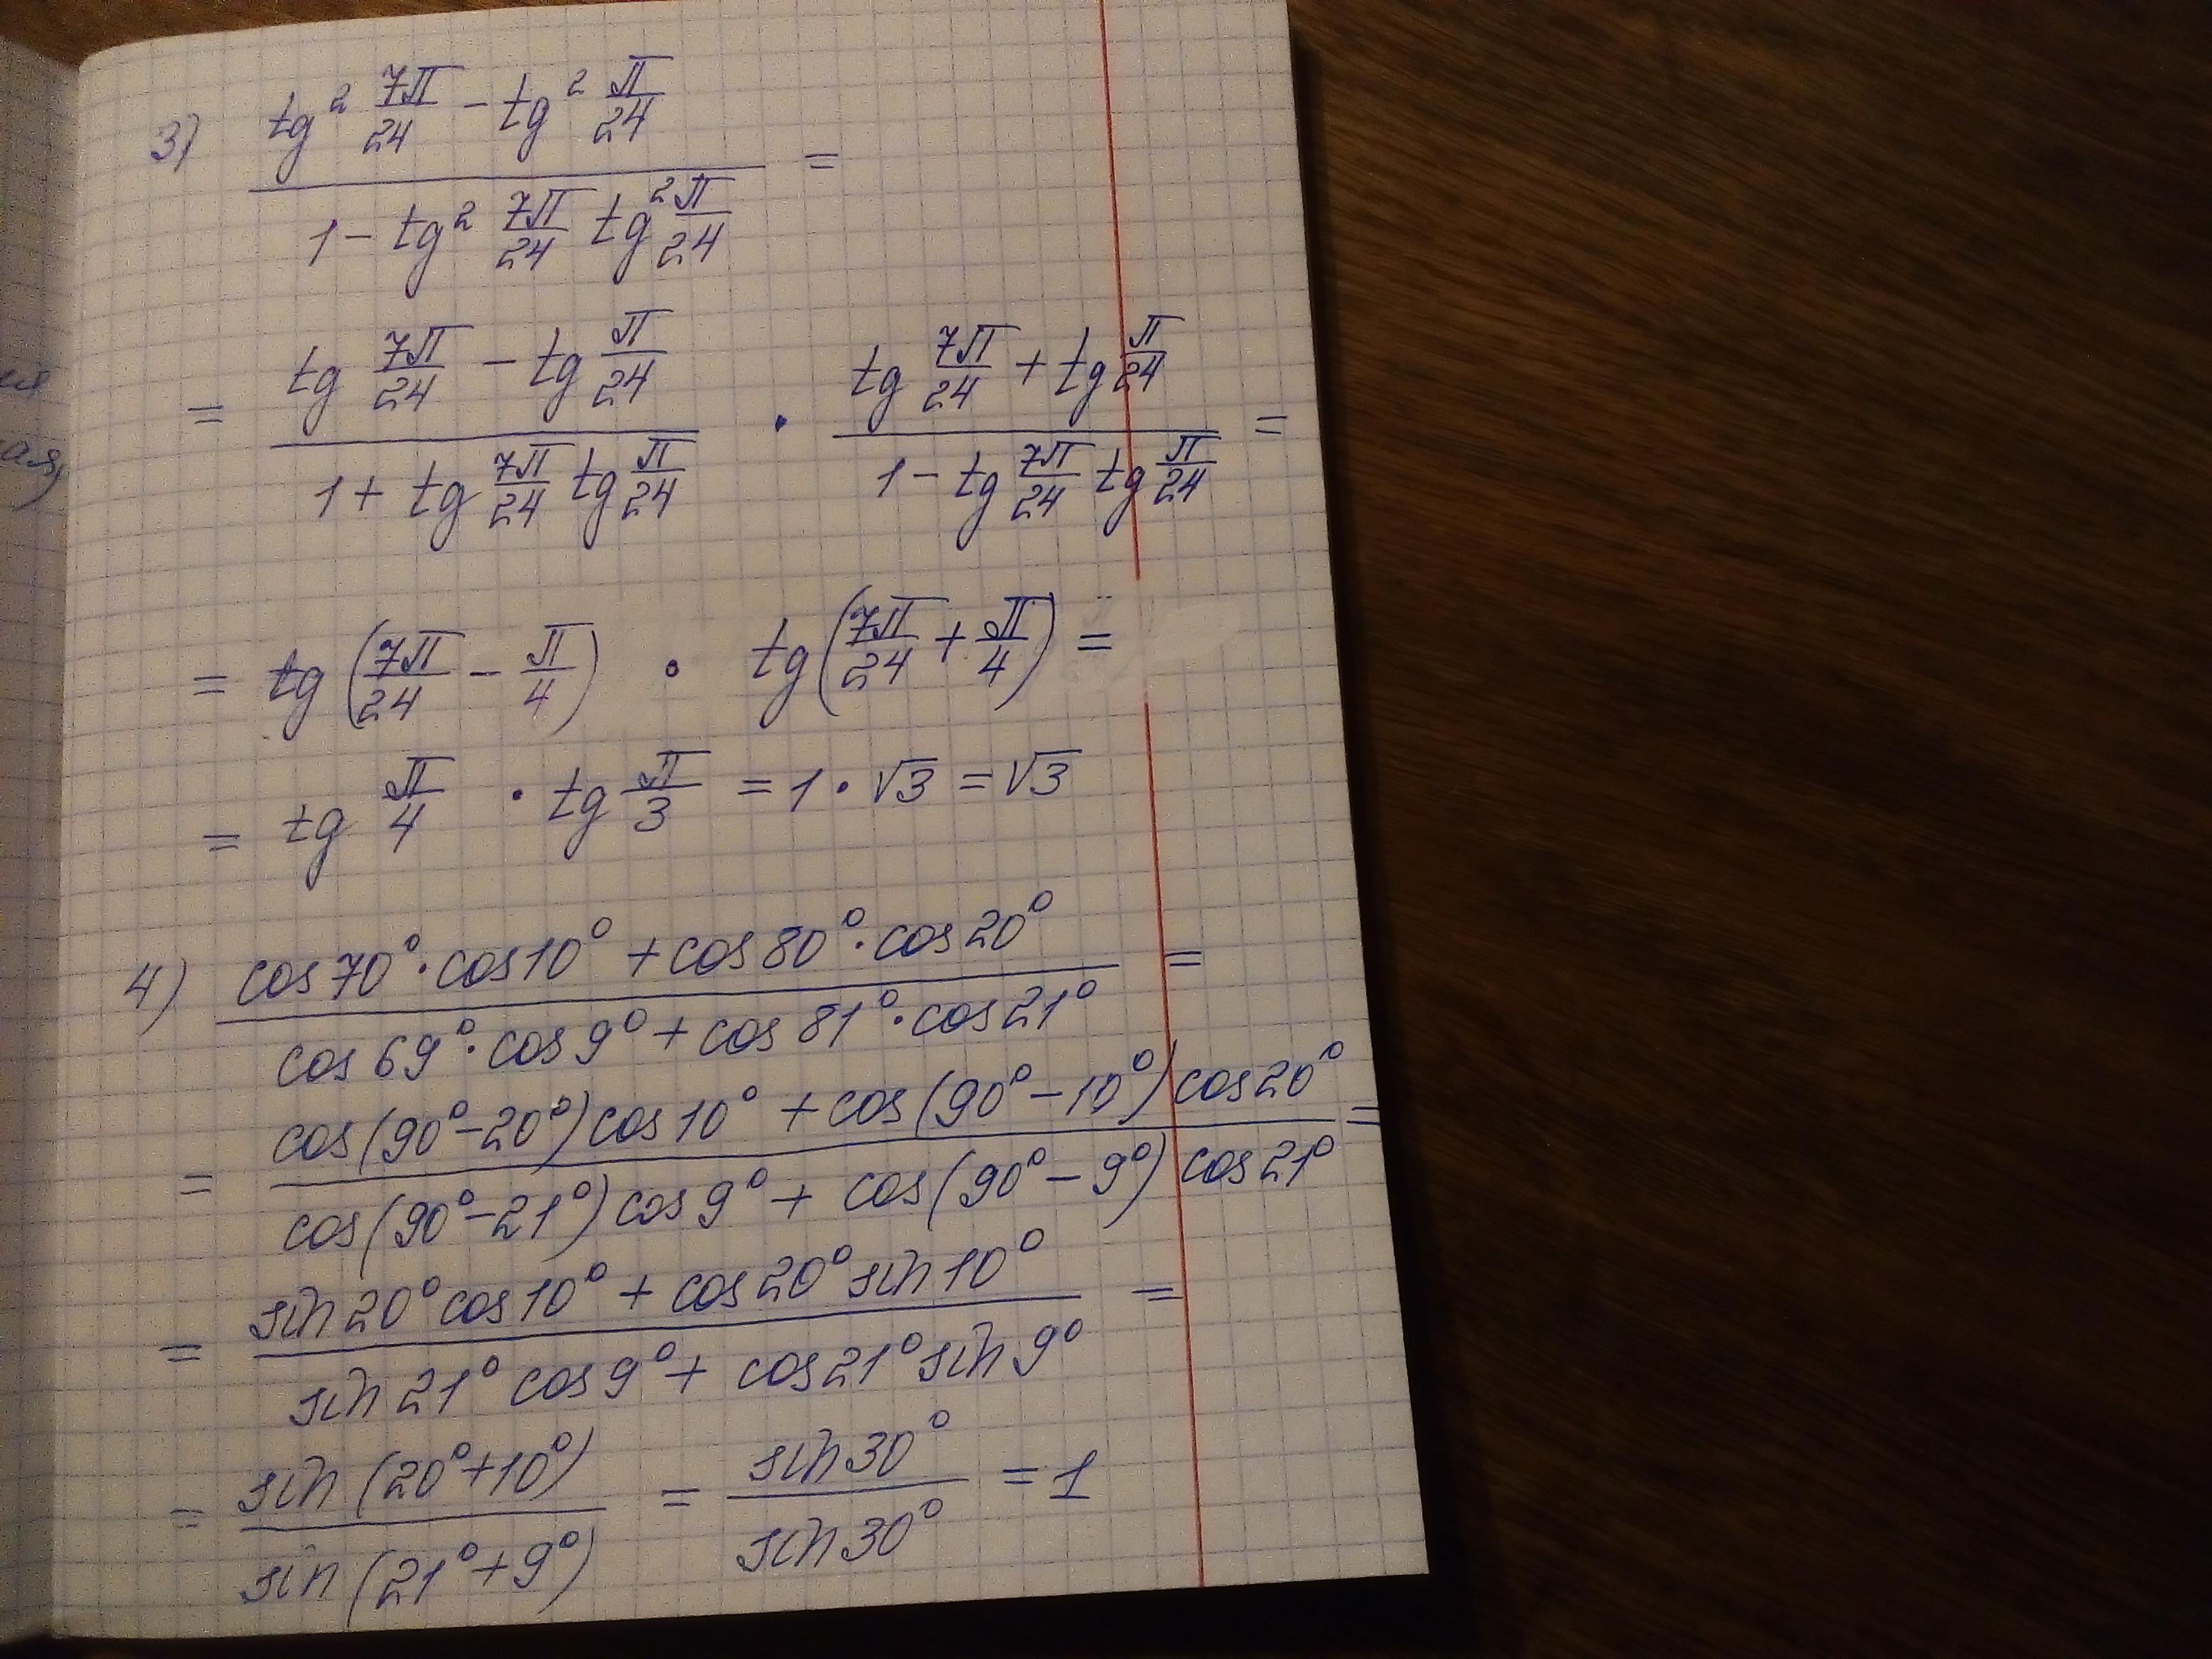 3) (tg² 7π/24 - tg² π/24) / (1 - tg² 7π/24 tg² π/24) =
= (tg 7π/24 - tg π/24) / (1 + tg 7π/24 tg π/24) · (tg 7π/24 + tg π/24) / (1 - tg 7π/24 tg π/24) =
= tg (7π/24 - π/4) · tg (7π/24 + π/4) =
= tg π/4 · tg π/3 = 1 · √3 = √3
4) (cos 70° · cos 10° + cos 80° · cos 20°) / (cos 69° · cos 9° + cos 81° · cos 21°) =
= (cos (90° - 20°) cos 10° + cos (90° - 10°) cos 20°) / (cos (90° - 21°) cos 9° + cos (90° - 9°) cos 21°) =
= (sin 20° cos 10° + cos 20° sin 10°) / (sin 21° cos 9° + cos 21° sin 9°) =
= sin (20° + 10°) / sin (21° + 9°) = sin 30° / sin 30° = 1